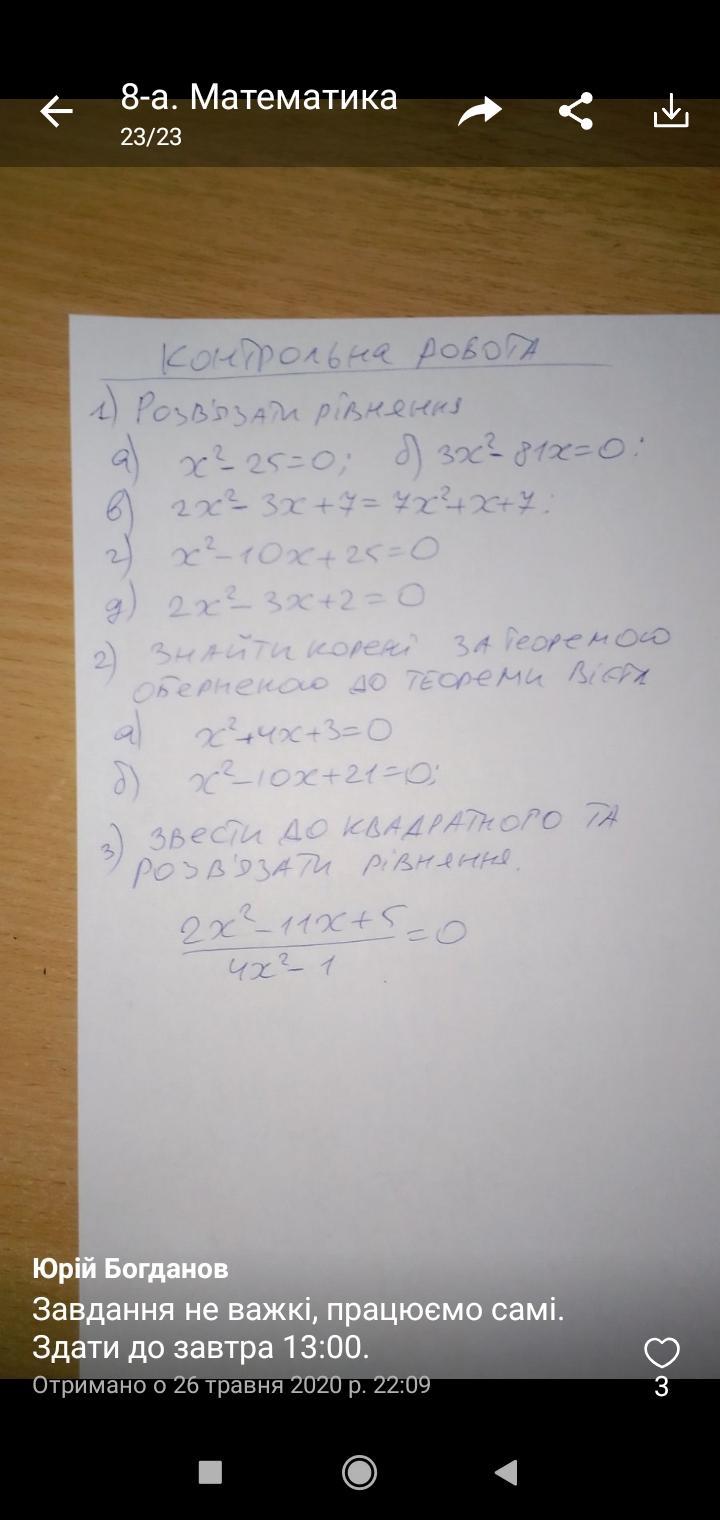 8-а. Математика
23/23
Контрольна робота
1) Розв'язати рівняння
а) x²-25=0; б) 3x²-81x=0;
в) 2x²-3x+7=7x²+x+7;
г) x²-10x+25=0
д) 2x²-3x+2=0
2) Знайти корені за теоремою
оберненою до теореми Вієта
а) x²+4x+3=0
б) x²-10x+21=0;
3) Звести до квадратного та
розв'язати рівняння.
2x²-11x+5
=0
4x²-1
Юрій Богданов
Завдання не важкі, працюємо самі.
Здати до завтра 13:00.
Отримано о 26 травня 2020 р. 22:09
3